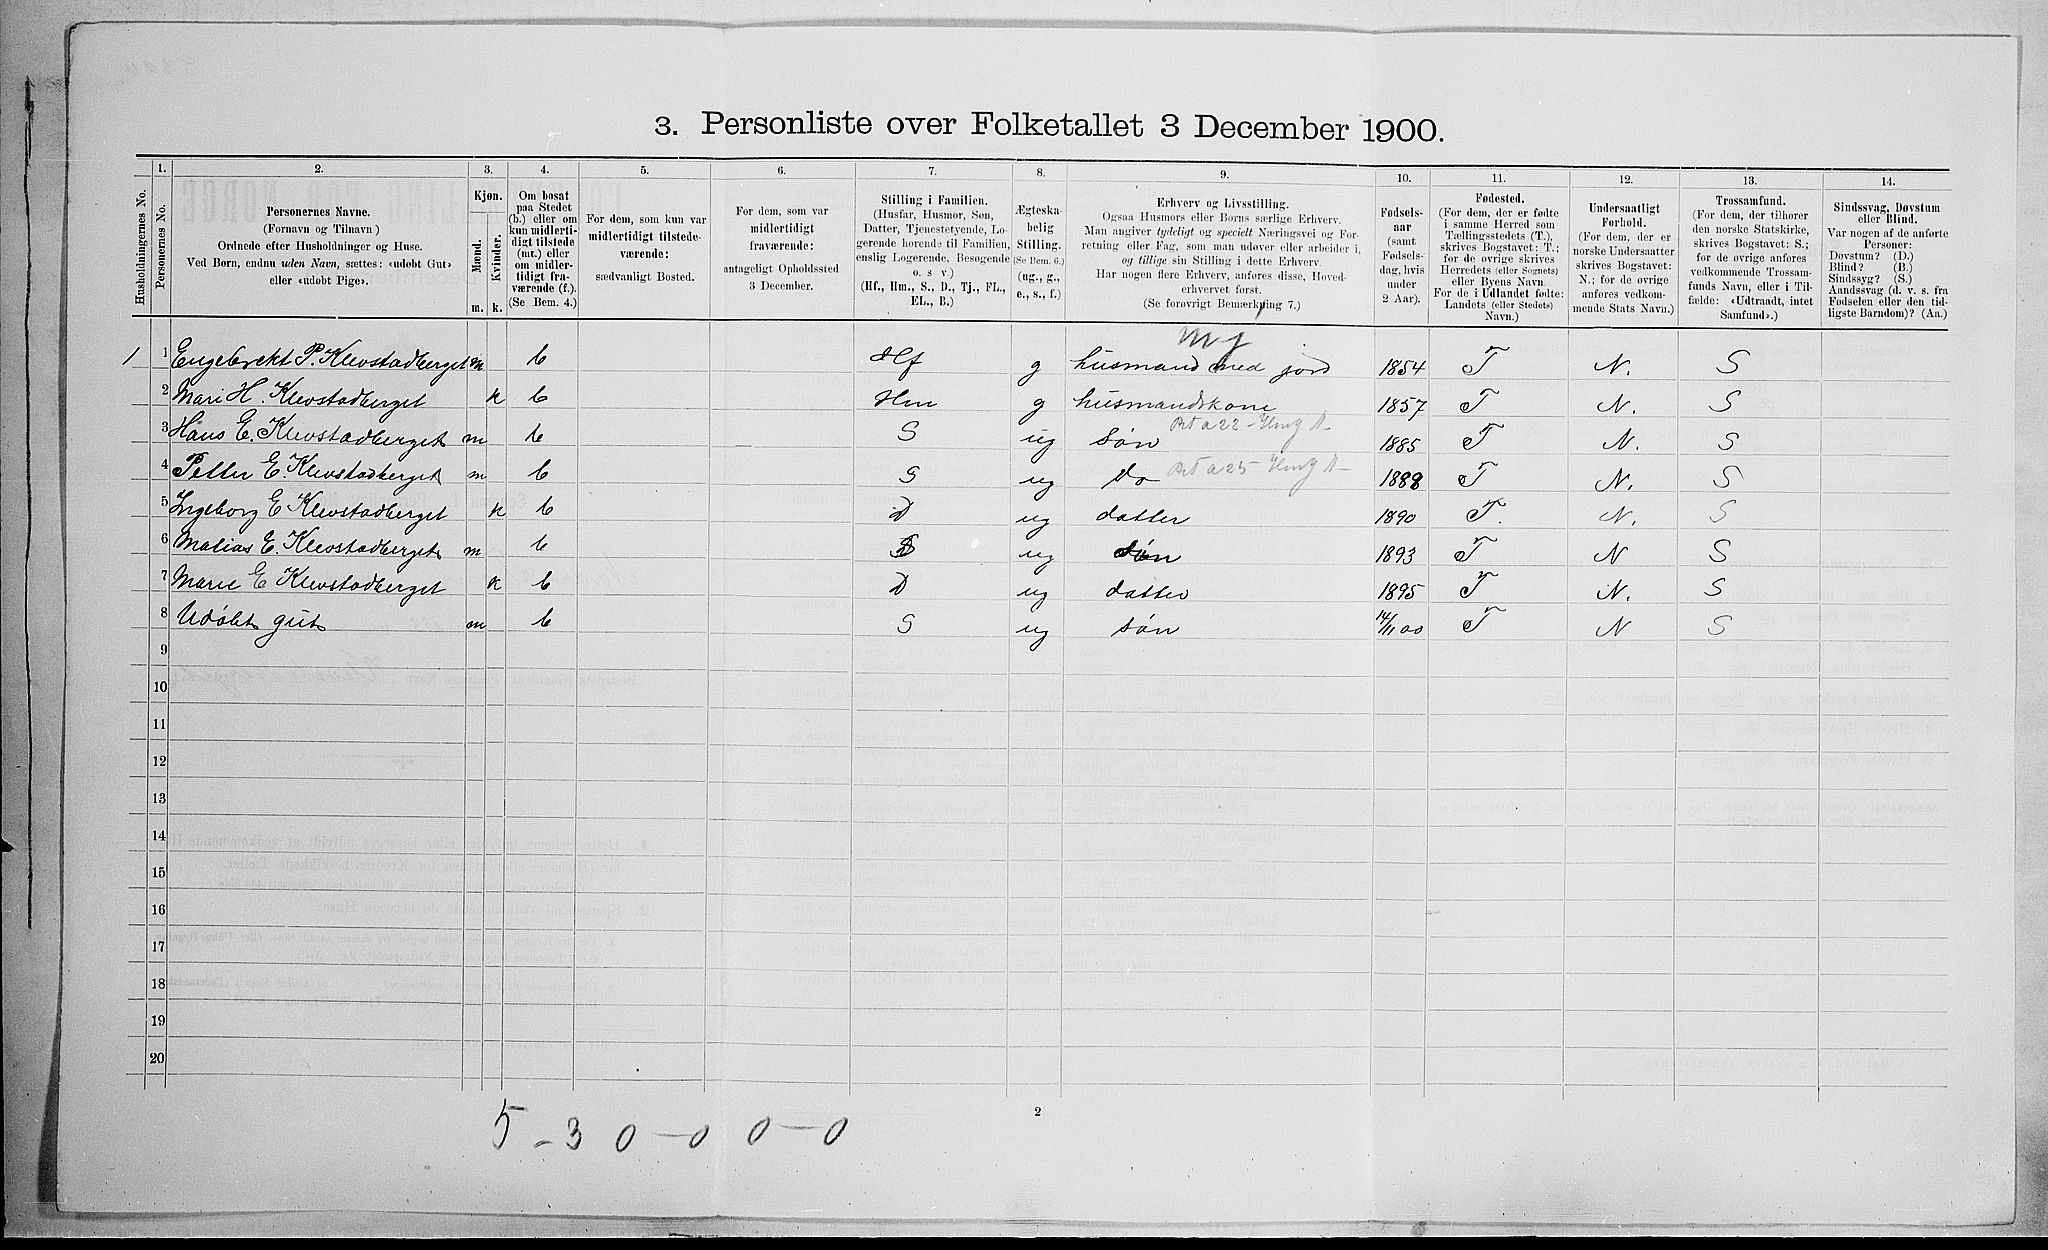 3. Personliste over Folketallet 3 December 1900.
1. 2. 3. 4. 5. 6. 7. 8. 9. 10. 11. 12. 13. 14.
Husholdningernes No.
Personernes No.
Personernes Navne.
(Fornavn og Tilnavn)
Ordnede efter Husholdninger og Huse.
Ved Børn, endnu uden Navn, sættes: «udøbt Gut»
eller «udøbt Pige».
Kjøn.
Mænd.
Kvinder.
m. k.
Om bosat
paa Stedet
(b.) eller om
kun midlerti-
digt tilstede
(mt.) eller
om midler-
tidigt fra-
værende (f.).
(Se Bem. 4.)
For dem, som kun var
midlertidigt tilstede-
værende:
sædvanligt Bosted.
For dem, som var
midlertidigt
fraværende:
antageligt Opholdssted
3 December.
Stilling i Familien.
(Husfar, Husmor, Søn,
Datter, Tjenestetyende, Lo-
gerende hørende til Familien,
enslig Logerende, Besøgende
o. s v.)
(Hf., Hm., S., D., Tj., FL.,
EL., B.)
Ægteska-
belig
Stilling.
(Se Bem. 6.)
(ug., g.,
e., s., f.)
Erhverv og Livsstilling.
Ogsaa Husmors eller Børns særlige Erhverv.
Man angiver tydeligt og specielt Næringsvei og For-
retning eller Fag, som man udøver eller arbeider i,
og tillige sin Stilling i dette Erhverv.
Har nogen flere Erhverv, anføres disse, Hoved-
erhvervet først.
(Se forøvrigt Bemærkning 7.)
Fødsels-
aar
(samt
Fødsels-
dag, hvis
under
2 Aar).
Fødested.
(For dem, der er fødte
i samme Herred som
Tællingsstedets (T.),
skrives Bogstavet: T.;
for de øvrige skrives
Herredets (eller Sognets)
eller Byens Navn.
For de i Udlandet fødte:
Landets (eller Stedets)
Navn.)
Undersaatligt
Forhold.
(For dem, der er
norske Undersaatter
skrives Bogstavet:
N.; for de øvrige
anføres vedkom-
mende Stats Navn.)
Trossamfund.
(For dem, der tilhører
den norske Statskirke,
skrives Bogstavet: S.;
for de øvrige anføres
vedkommende Trossam-
funds Navn, eller i Til-
fælde: «Udtraadt, intet
Samfund».)
Sindssvag, Døvstum
eller Blind.
Var nogen af de anførte
Personer:
Døvstum? (D.)
Blind? (B.)
Sindssyg? (S.)
Aandssvag (d. v. s. fra
Fødselen eller den tid-
ligste Barndom)? (Aa.)
1 1 Engebrekt P. Klevstadberget m b Hf g husmand med jord 1854 T N. S
2 Mari H. Klevstadberget k b Hm g husmandskone 1857 T N. S
3 Hans E. Klevstadberget m b S ug søn 1885 T N. S
4 Petter E. Klevstadberget m b S ug do 1888 T N. S
5 Ingeborg E Klevstadberget k b D ug datter 1890 T. N. S
6 Matias E. Klevstadberget m b S ug søn 1893 T N S
7 Marie E Klevstadberget k b D ug datter 1895 T N. S
8 Udøbt gut m b S ug søn 14/11 00 T N S
9
10
11
12
13
14
15
16
17
18
19
20
2
5 - 3 0 - 0 0 - 0